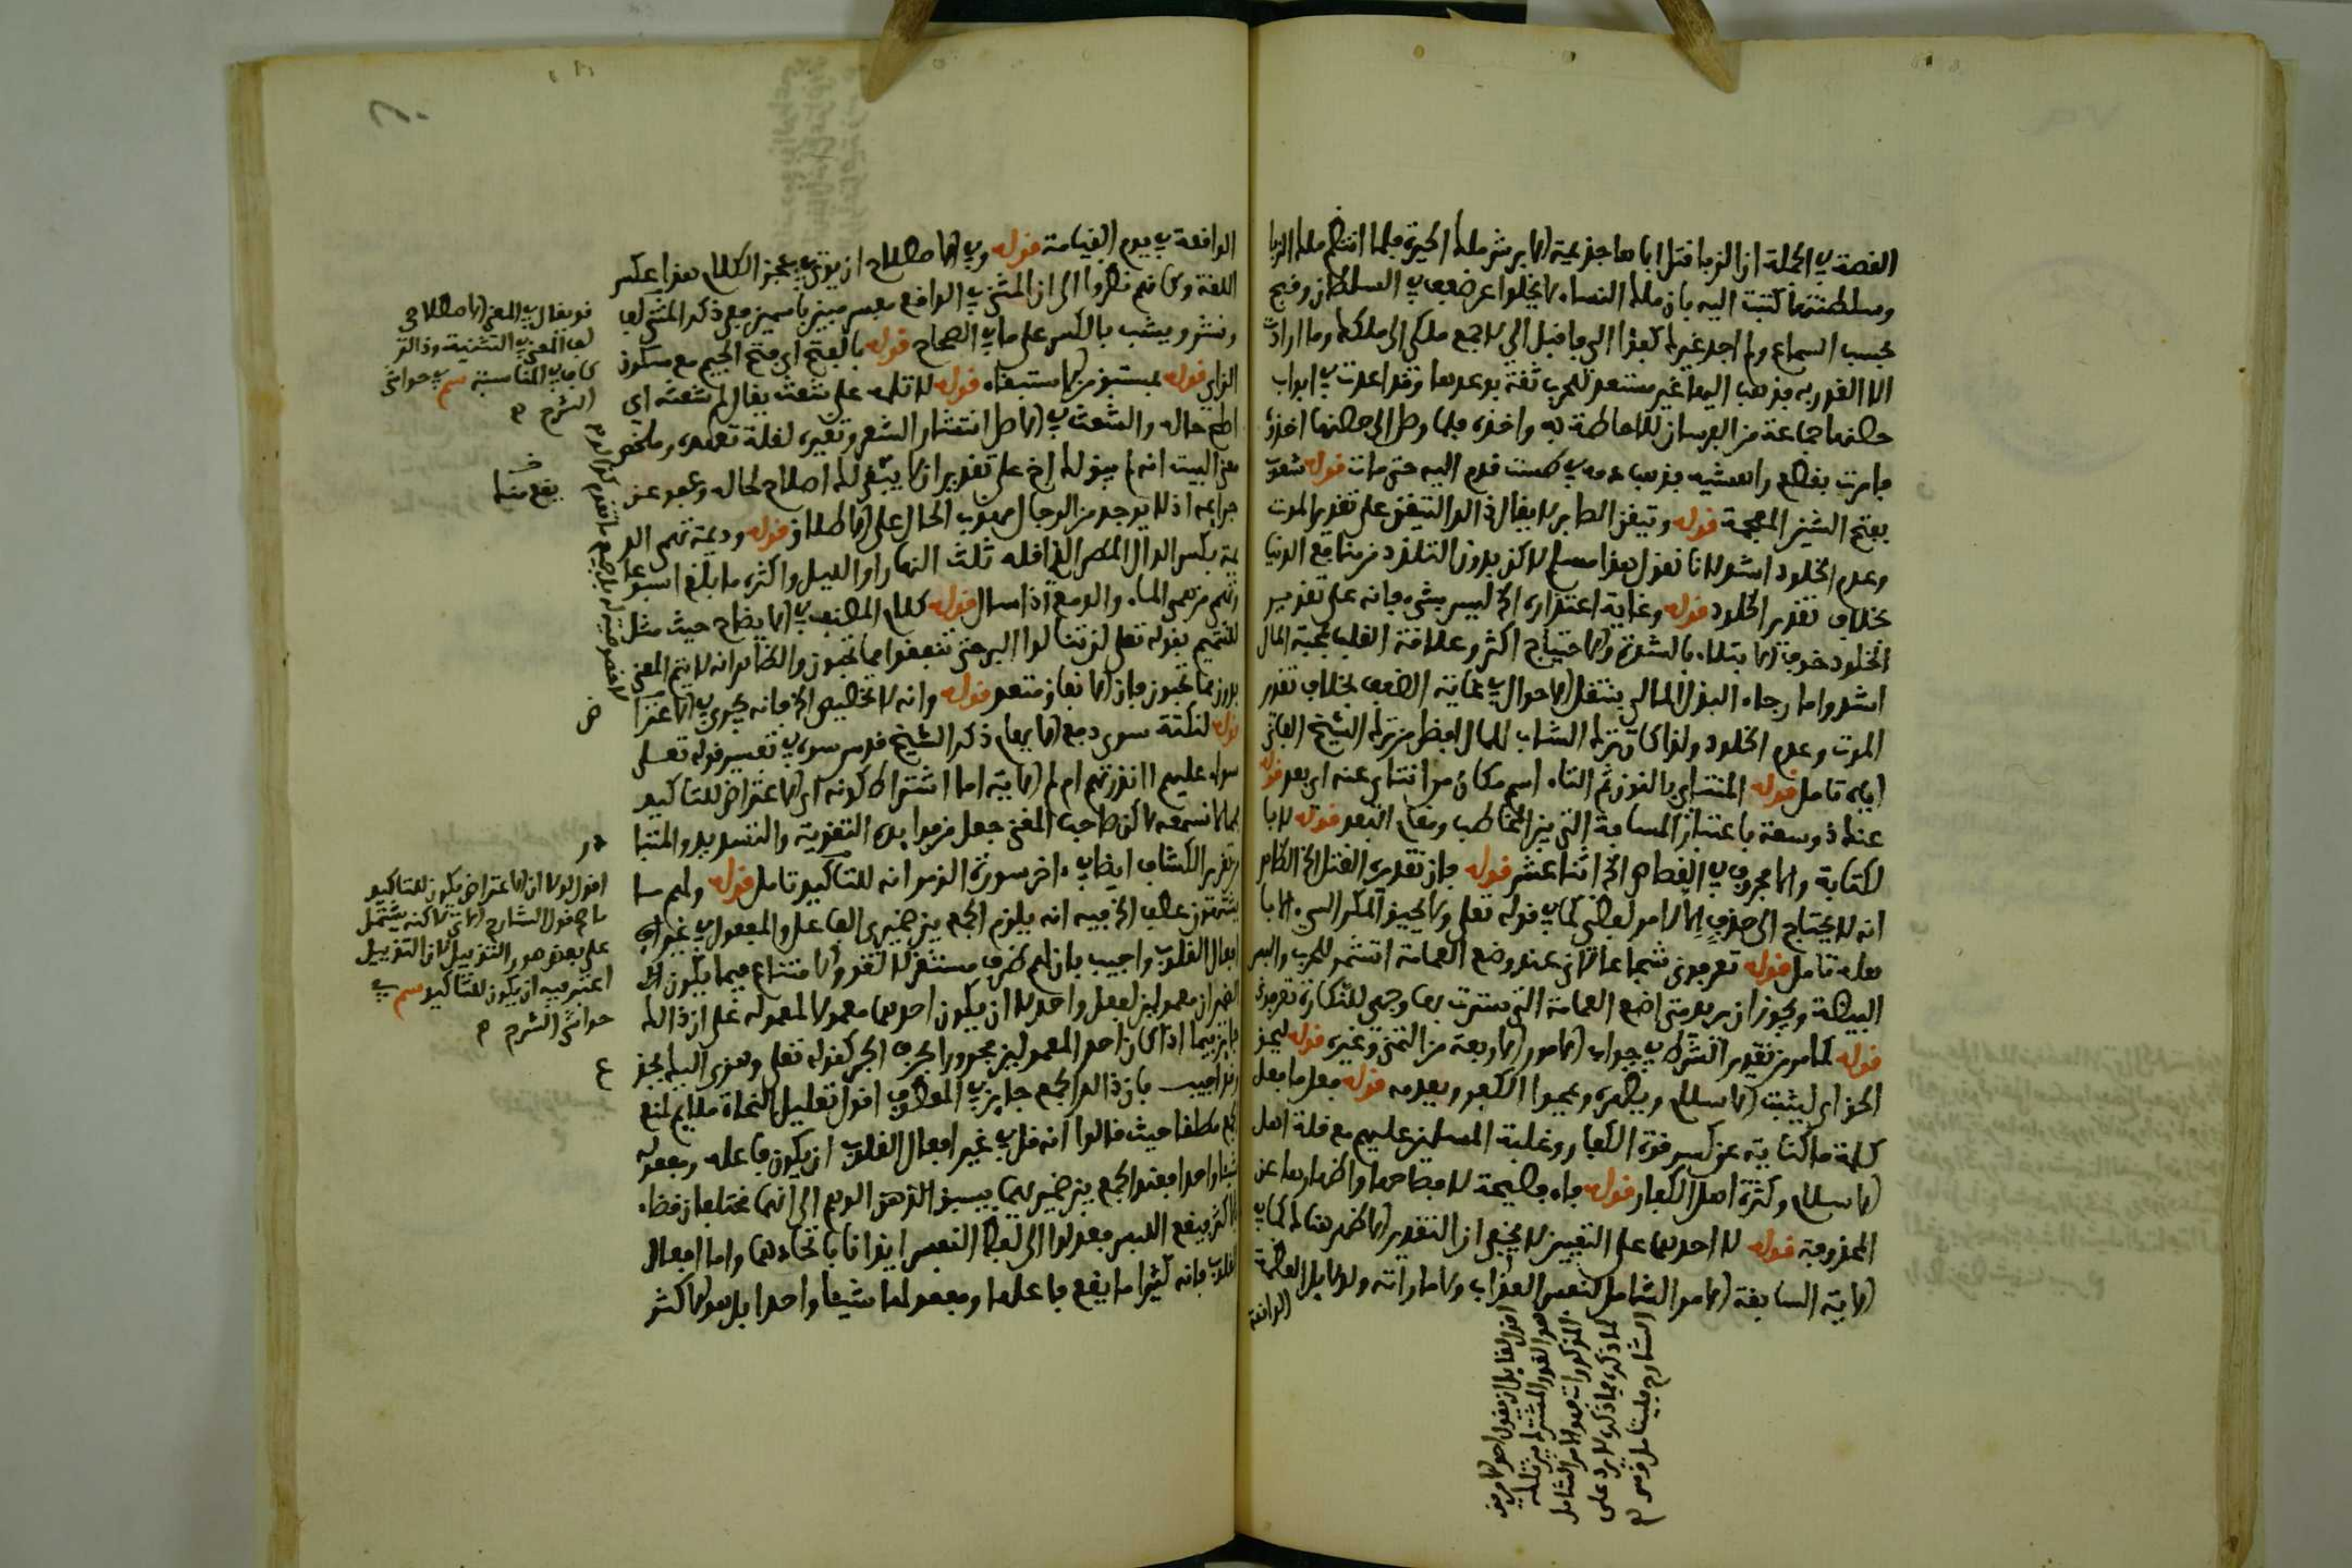 القصة في الجملة ان الزبا قتل اباها جذيمة الابرش ملك الحيرة فلما انتظم ملك الزبا
وسلطنتها كتبت اليه بان ملك النساء لا يخلو عن ضعف في السلطان وقبح
بحسب السماع ولم اجد غيرك كفؤا الي فاقبل الي لاجمع ملكي الى ملكك وما ارادت
الا الغدر به فذهب اليها غير مستعد للحرب ثقة بوعدها وقد اعدت في ابواب
حصنها جماعة من الفرسان للاحاطة به واخذه فلما وصل الى حصنها اخذوه
فامرت بقطع راهشيه فذهب دمه في طست قدم اليه حتى مات قوله شعوب
بفتح الشين المعجمة قوله وتيقن الصابر لا يقال ذلك التيقن على تقدير الموت
وعدم الخلود اشد لانا نقول هذا مسلم لاكن بدون التلذذ من منافع الدنيا
بخلاف تقدير الخلود قوله وغاية اعتذاره الخ ليس بشيء فانه على تقدير
الخلود خوف الابتلاء بالشدة والاحتياج اكثر وعلاقة القلب بمحبة المال
اشد واما رجاء البذل المالي بتنقل الاحوال في غاية الضعف بخلاف تقدير
الموت وعدم الخلود ولذا كان ترك الشاب للمال افضل من ترك الشيخ الفاني
اياه تامل قوله المنتاى بالنون ثم التاء اسم مكان من انتاى عنه اي بعد قوله
عنك ذو سعة باعتبار المسافة التي بين المخاطب ومقام البعد قوله لابا
لكتابة والا محروف في الفصاص الخ اثنا عشر قوله فان تقديره القتل الخ الظاهر
انه لا يحتاج الى حذف الا لامر لفظي كما في قوله تعلى ولا يحيق المكر السيء الا با
هله تامل قوله تعرفوني شجاعا لاني عند وضع العمامة اتشمر للحرب والبس
البيضة ويجوز ان يريد متى اضع العمامة التي سترت بها وجهي للنكارة تعرفوني
قوله كما مر من تقدير الشرط في جواب الامور الاربعة من التمني وغيره قوله ليحق
الحق اي ليثبت الاسلام ويظهره ويمحوا الكفر ويعدمه قوله فعل ما فعل
كلمة ما كناية عن كسر قوة الكفار وغلبة المسلمين عليهم مع قلة اهل
الاسلام وكثرة اهل الكفار قوله فاء فصيحة لافصاحها واظهارها عن
المحذوفة قوله لا احدهما على التعيين لا يخفى ان التقدير الاظهر هنا كما في
الاية السابقة الامر الشامل لنفس العذاب والاماراته ولا قابل العظمة
الواقعة
اقول لقائل ان يقول احد الامرين
هو القدر المشترك بين تلك
المذكورات فهو الامر الشامل
لما ذكره فما ذكره لا يرد على
الشارح فليتامل
الواقعة في يوم القيامة قوله وفي الاصطلاح ان يؤتى في عجز الكلام هذا عكس
اللغة وكانهم نظروا الى ان المثنى في الواقع مفسر مبين باسمين ففي ذكر المثنى لف
ونشر ويشب بالكسر على ما في الصحاح قوله بالفتح اي فتح الجيم مع سكون
الزاي قوله بمستبق من الاستبقاء قوله لا تلمه على شعث يقال لم شعثه اي
اصلح حاله والشعث في الاصل انتشار الشعر وتغيره لقلة تعهده وملخص
معنى البيت انه لم يبق لك اخ على تقدير ان لا يبقى لك اصلاح لحاله وعفو عن
جرايمه اذ لا يوجد من الرجال مهذب الحال على الاطلاق قوله وديمة تهمي الد
يمة بكسر الدال المطر الذي اقله ثلث النهار او الليل واكثره ما بلغ اسبوعا
وتهمي من همى الماء والدمع اذا سال قوله كلام المصنف في الايضاح حيث مثل
للتتميم بقوله تعلى لن تنالوا البر حتى تنفقوا مما تحبون والظاهر انه لا يتم المعنى
بدون مما تحبون فان الانفاق متعد قوله وانه لا تخصيص الخ فانه يجري في الاعترا
قوله لنكتة سوى دفع الايهام ذكر الشيخ قدس سره في تفسير قوله تعلى
سواء عليهم اانذرتهم ام لم الاية اما اشتراط كونه اي الاعتراض للتاكيد
فمما لا نسمعه لاكن صاحب المغني جعل من فوايده التقوية والتسديد والمتبا
در من تقرير الكشاف ايضا في ءاخر سورة الزمر انه للتاكيد تامل قوله ولهم ما
يشتهون عطف الخ فيه انه يلزم الجمع بين ضميري الفاعل والمفعول في غير
افعال القلوب واجيب بان لهم ظرف مستقر لا لغو والامتناع فيما يكون
الضميران معمولين لفعل واحد لا ان يكون احدهما معمولا لمعموله على ان ذالك
جايز فيما اذا كان احد المعمولين مجرورا بحرف الجر كقوله تعلى وهزي اليك بجذ
وقد اجيب بان ذالك الجمع جايز في المعطوف اقول تعليل النحاة ملايم لمنع
الجمع مطلقا حيث قالوا انه قل في غير افعال القلوب ان يكون فاعله ومفعوله
شيئا واحدا فعند الجمع بين ضميريهما يسبق الذهن الوهم الى انهما مختلفان قضاء
للاكثر فيقع اللبس فعدلوا الى لفظ النفس ايذانا باتحادهما واما افعال
القلوب فانه كثيرا ما يقع فاعلها ومفعولها شيئا واحدا بل هو الاكثر
قد يقال في المعنى الاصطلاحي
لف المعنى في التثنية وذالك
كاف في المناسبة سم في حواشي
الشرح
يقع منها
اقول لولا ان الاعتراض يكون للتاكيد
ما صح قول الشارح الاتي لاكنه يشتمل
على بعض صور التذييل لان التذييل
اعتبر فيه ان يكون للتاكيد سم في
حواشي الشرح